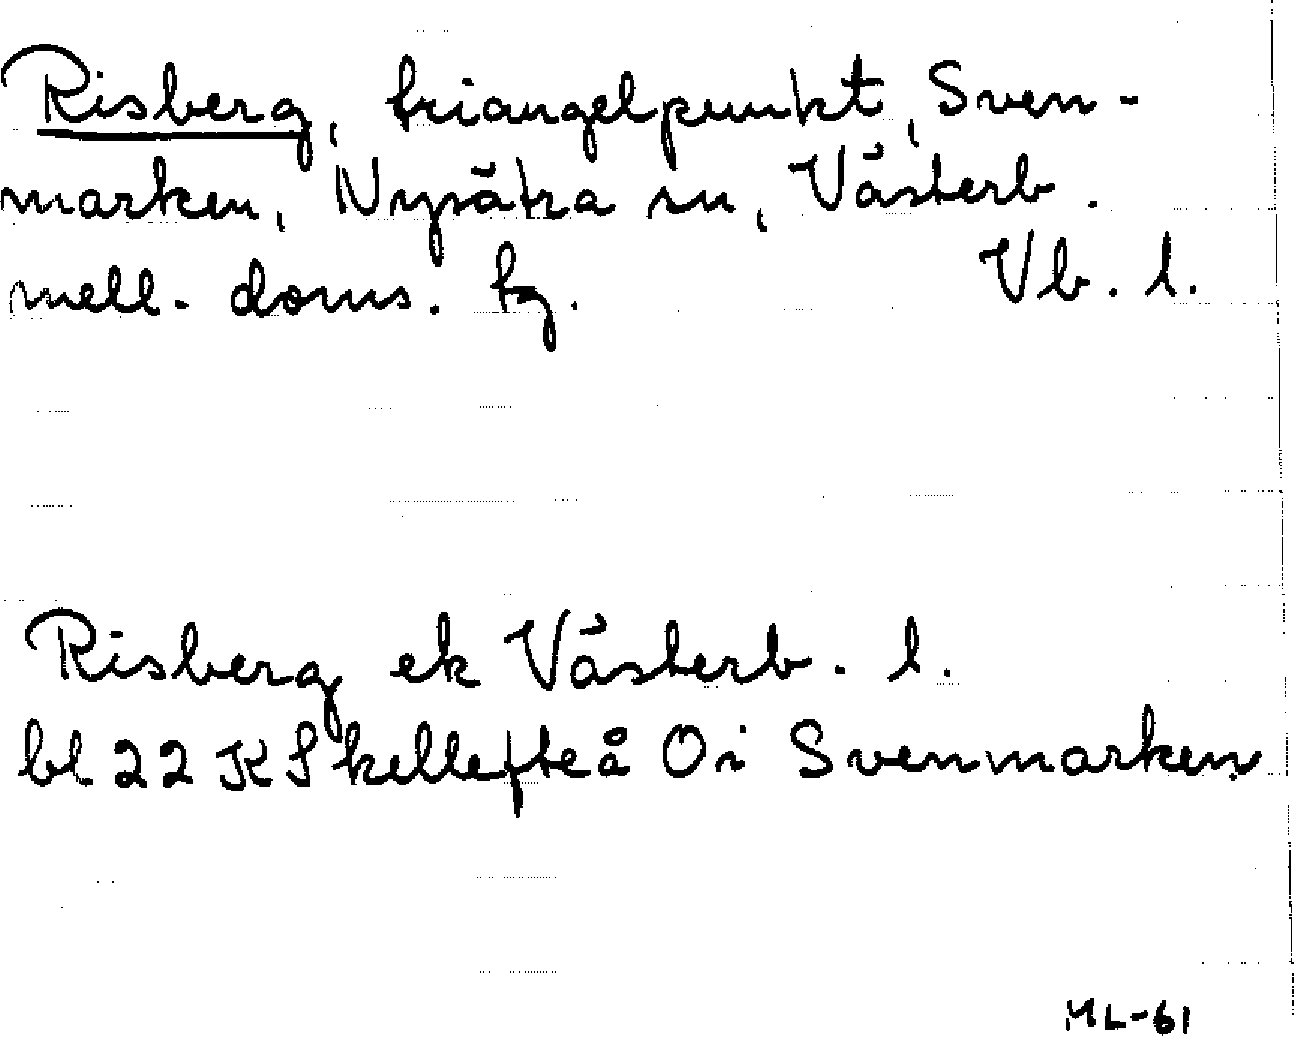 Risberg, triangelpunkt, Sven-
marken, Nysätra sn, Västerb.
mell. doms. tg. Vb. l.
Risberg ek Västerb. l.
bl 22 K Skellefteå Oi Svenmarken
ML-61